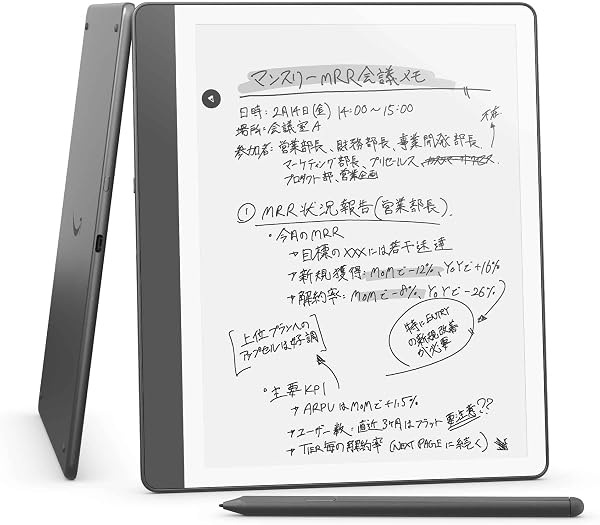 マンスリーMRR会議メモ
日時: 2月14日(金) 14:00〜15:00
場所: 会議室A
不在
参加者: 営業部長、財務部長、事業開発部長、
マーケティング部長、プリセールス、カスタマーサクセス
プロダクト部、営業企画
① MRR状況報告(営業部長)
・今月のMRR
→目標のXXXには若干未達
→新規獲得: MoMで-12%、YoYで+16%
→解約率: MoMで-8%、YoYで-26%
[上位プランへの
アップセルは好調]
特にENTRY
の新規改善
が必要
・主要KPI
→ARPUはMoMで+1.5%
→ユーザー数: 直近3ヶ月はフラット 要注意??
→TIER毎の解約率 (NEXT PAGEに続く)